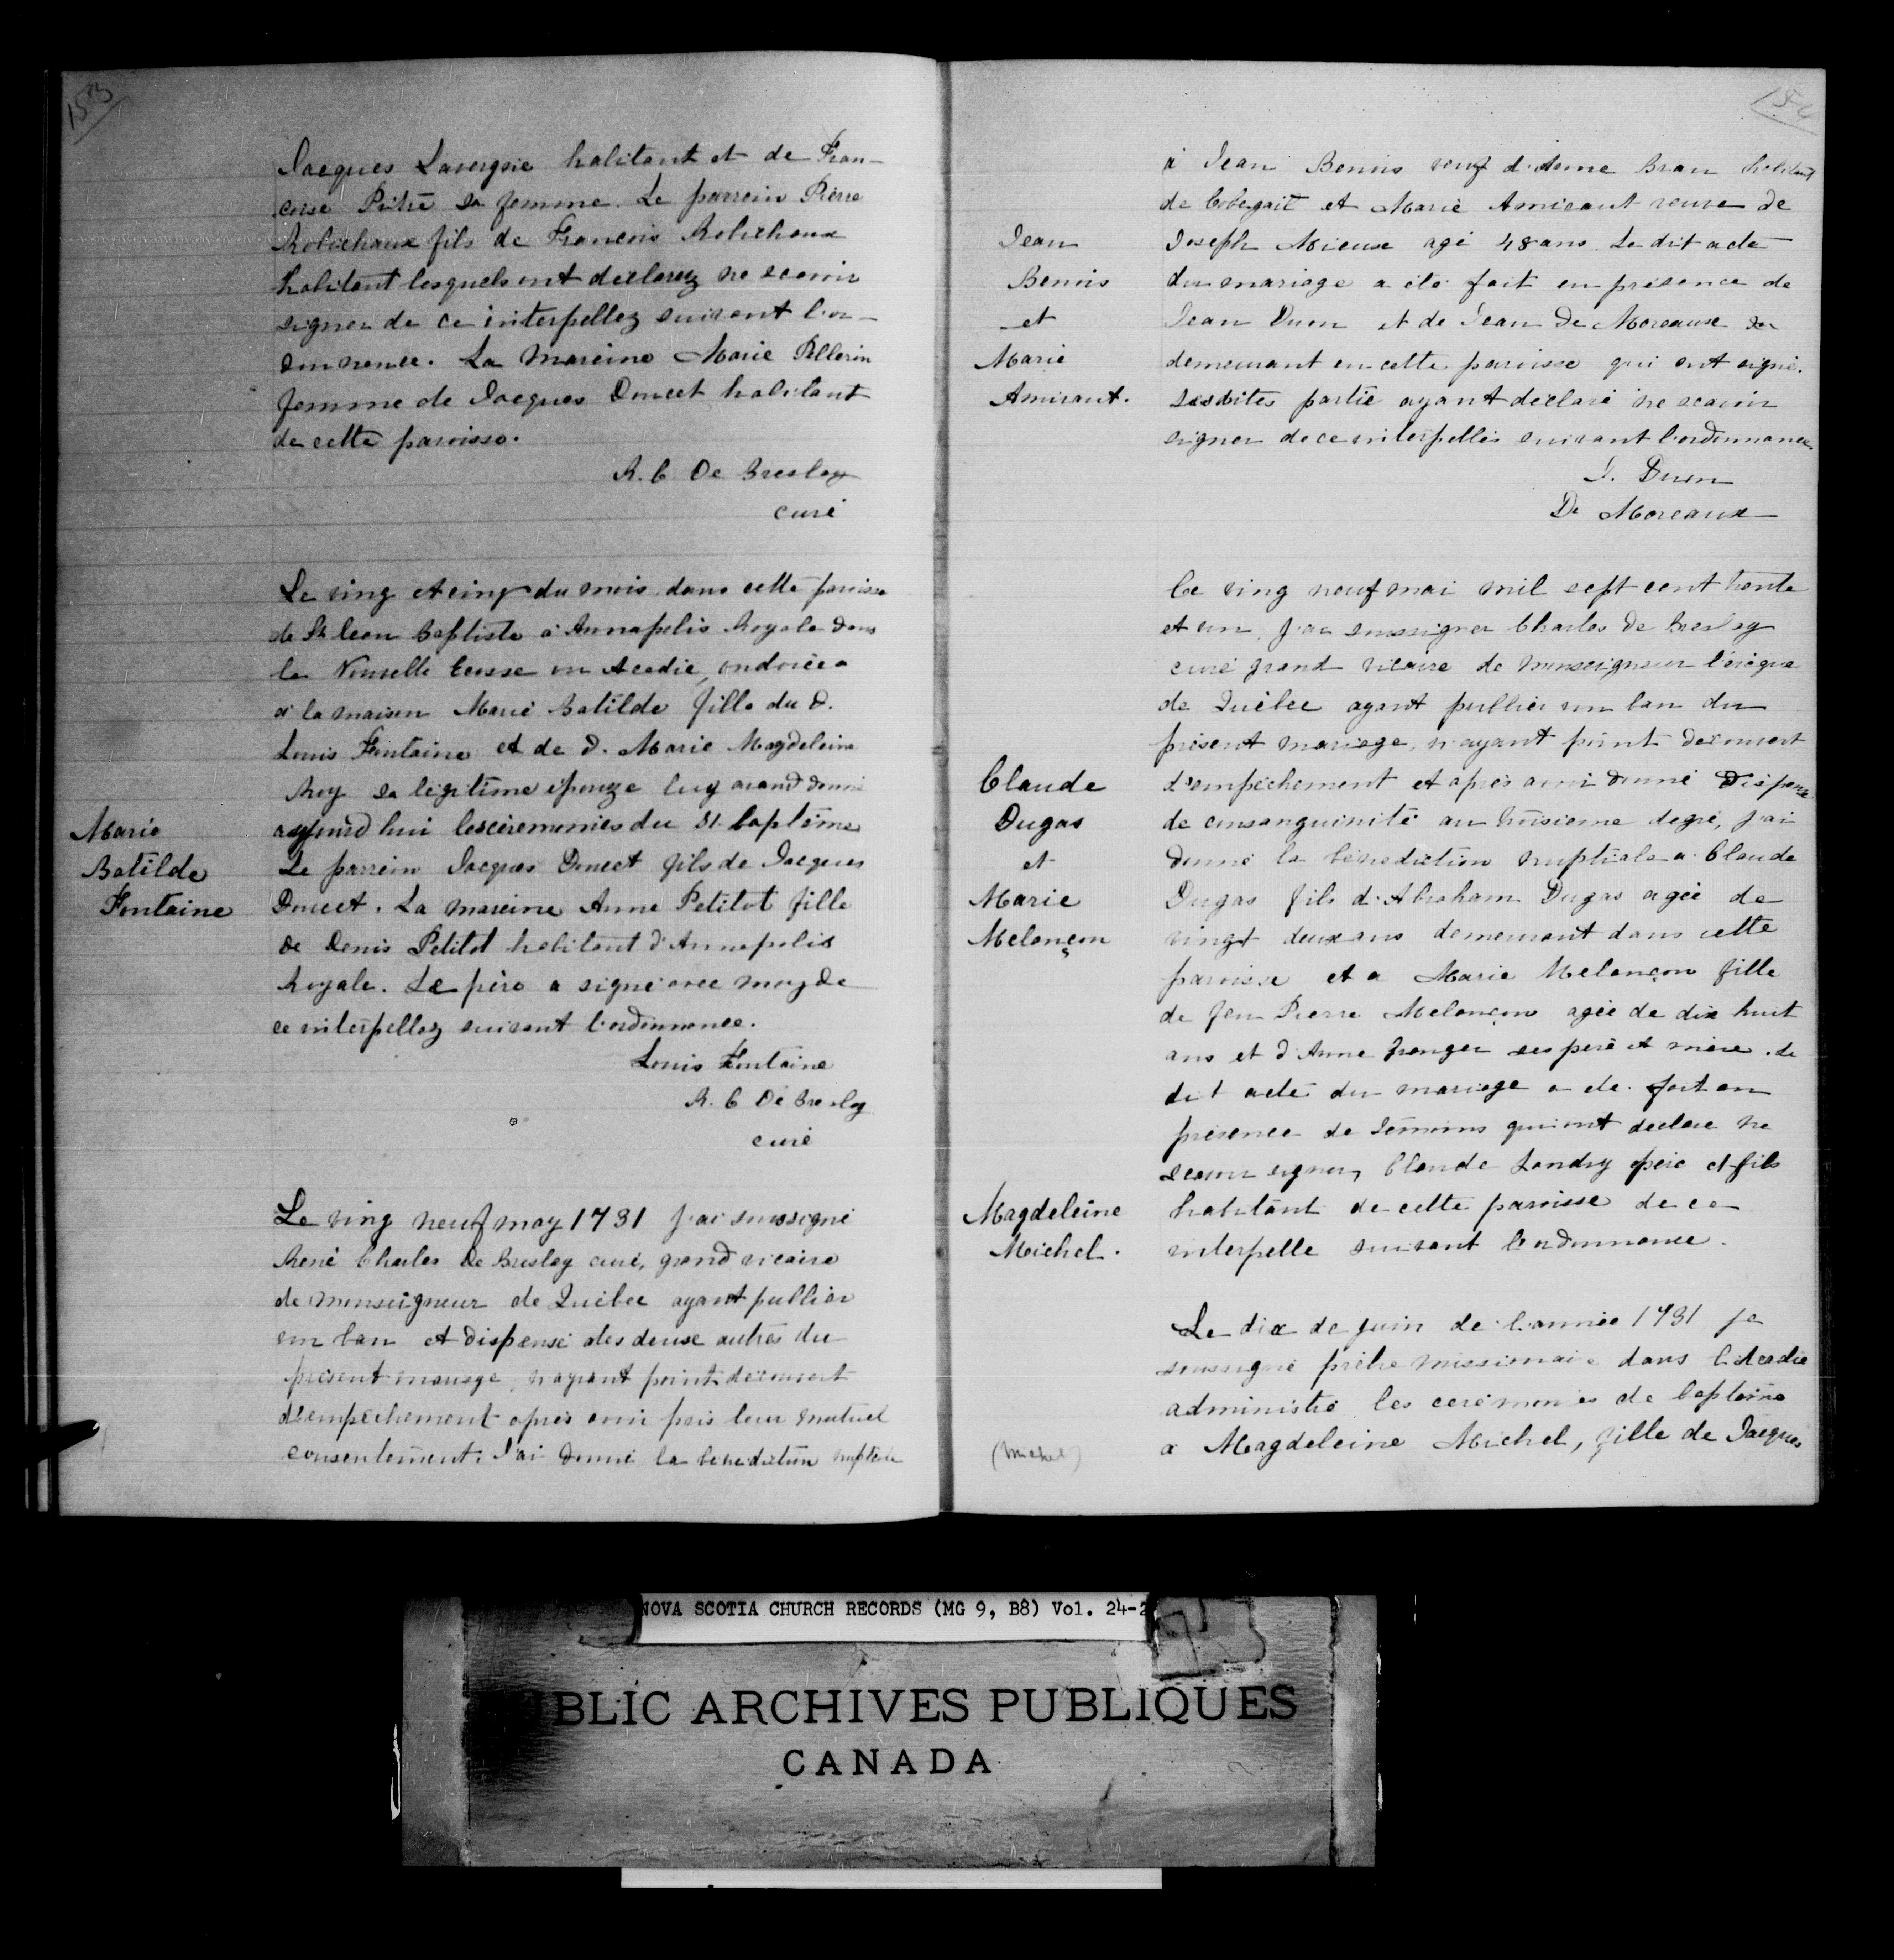 153
Jacques Lavergne habitant et de Fran-
coise Pitre sa femme. Le parrein Pierre
Robichaux fils de Francois Robichaux
habitant lesquels ont declarez ne scavoir
signer de ce interpellez suivant l'or-
donnance. La mareine Marie Pellerin
femme de Jacques Doucet habitant
de cette paroisse.
R. C. De Breslay
curé
Le ving et cinq du mois dans cette paroisse
de St Jean Baptiste a Annapolis Royale dans
la Nouvelle Ecosse ou Acadie, ondoiée
a la maison Marie Batilde fille du d.
Louis Fontaine et de d. Marie Magdeleine
Roy sa légitime epouze luy avand donné
aujourd'hui les cérémonies du St. baptême
Le parrein Jacques Doucet fils de Jacques
Doucet. La mareine Anne Petitot fille
de Denis Petitot habitant d'Annapolis
Royale. Le père a signé avec moy de
ce interpellez suivant l'ordonnance.
Marie
Batilde
Fontaine
Louis Fontaine
R. C De Breslay
curé
Le ving neuf may 1731 j'ai soussigné
René Charles De Breslay curé, grand vicaire
de monseigneur de Québec ayant publier
un ban et dispensé des deuse autres du
présent mariage, n'ayant point découvert
d'empêchement après avoir pris leur mutuel
consentement. J'ai donné la bénédiction nuptiale
154
à Jean Benois veuf d. dame Brau habitant
de Cobegait et Marie Amirault veuve de
Joseph Mieuse agé 48 ans. Le dit acte
du mariage a été fait en présence de
Jean Duon et de Jean De Moreause
demeurant en cette paroisse qui ont signé.
Lesdites partie ayant déclaré ne scavoir
signer de ce interpellés suivant l'ordonnance.
Jean
Benois
et
Marie
Amirant.
J. Duon
De Moreaux
Ce ving neuf mai mil sept cent trente
et un, j'ai soussigner Charles de Breslay
curé grand vicaire de monseigneur l'évêque
de Québec ayant publier un ban du
présent mariage, n'ayant point découvert
d'empêchement et après avoir donné dispense
de consanguinité au troisieme degré, j'ai
donné la bénédiction nuptiale a Claude
Dugas fils d'Abraham Dugas agée de
vingt deux ans demeurant dans cette
paroisse et a Marie Melançon fille
de feu Pierre Melançon agée de dix huit
ans et d'Anne Granger ses père et mère. Le
dit acte du mariage a été fait en
présence de témoins qui ont declaré ne
scavoir signer, Claude Landry père et fils
habitant de cette paroisse de ce
interpelle suivant l'ordonnance.
Claude
Dugas
et
Marie
Melançon
Le dix de juin de l'année 1731 je
soussigné prêtre missionaire dans l'Acadie
administré les cérémonies de baptême
a Magdeleine Michel, fille de Jacques
Magdeleine
Michel.
(Michel)
NOVA SCOTIA CHURCH RECORDS (MG 9, B8) Vol. 24-2
BLIC ARCHIVES PUBLIQUES
CANADA